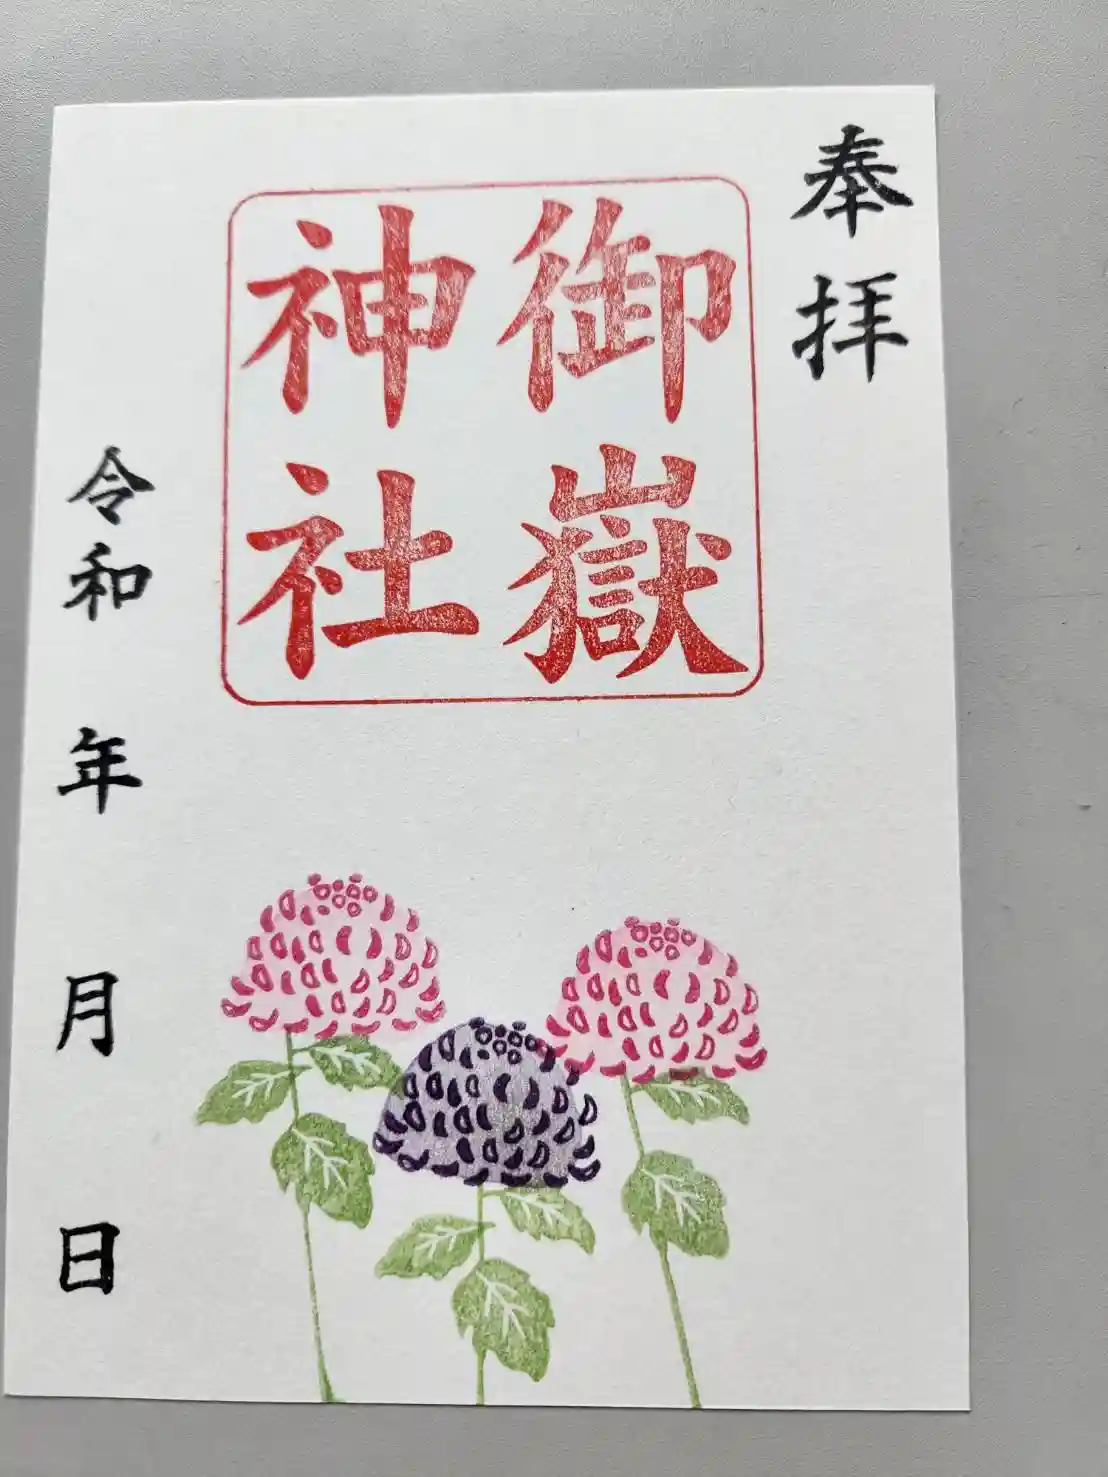 奉拝
御嶽
神社
令和 年 月 日